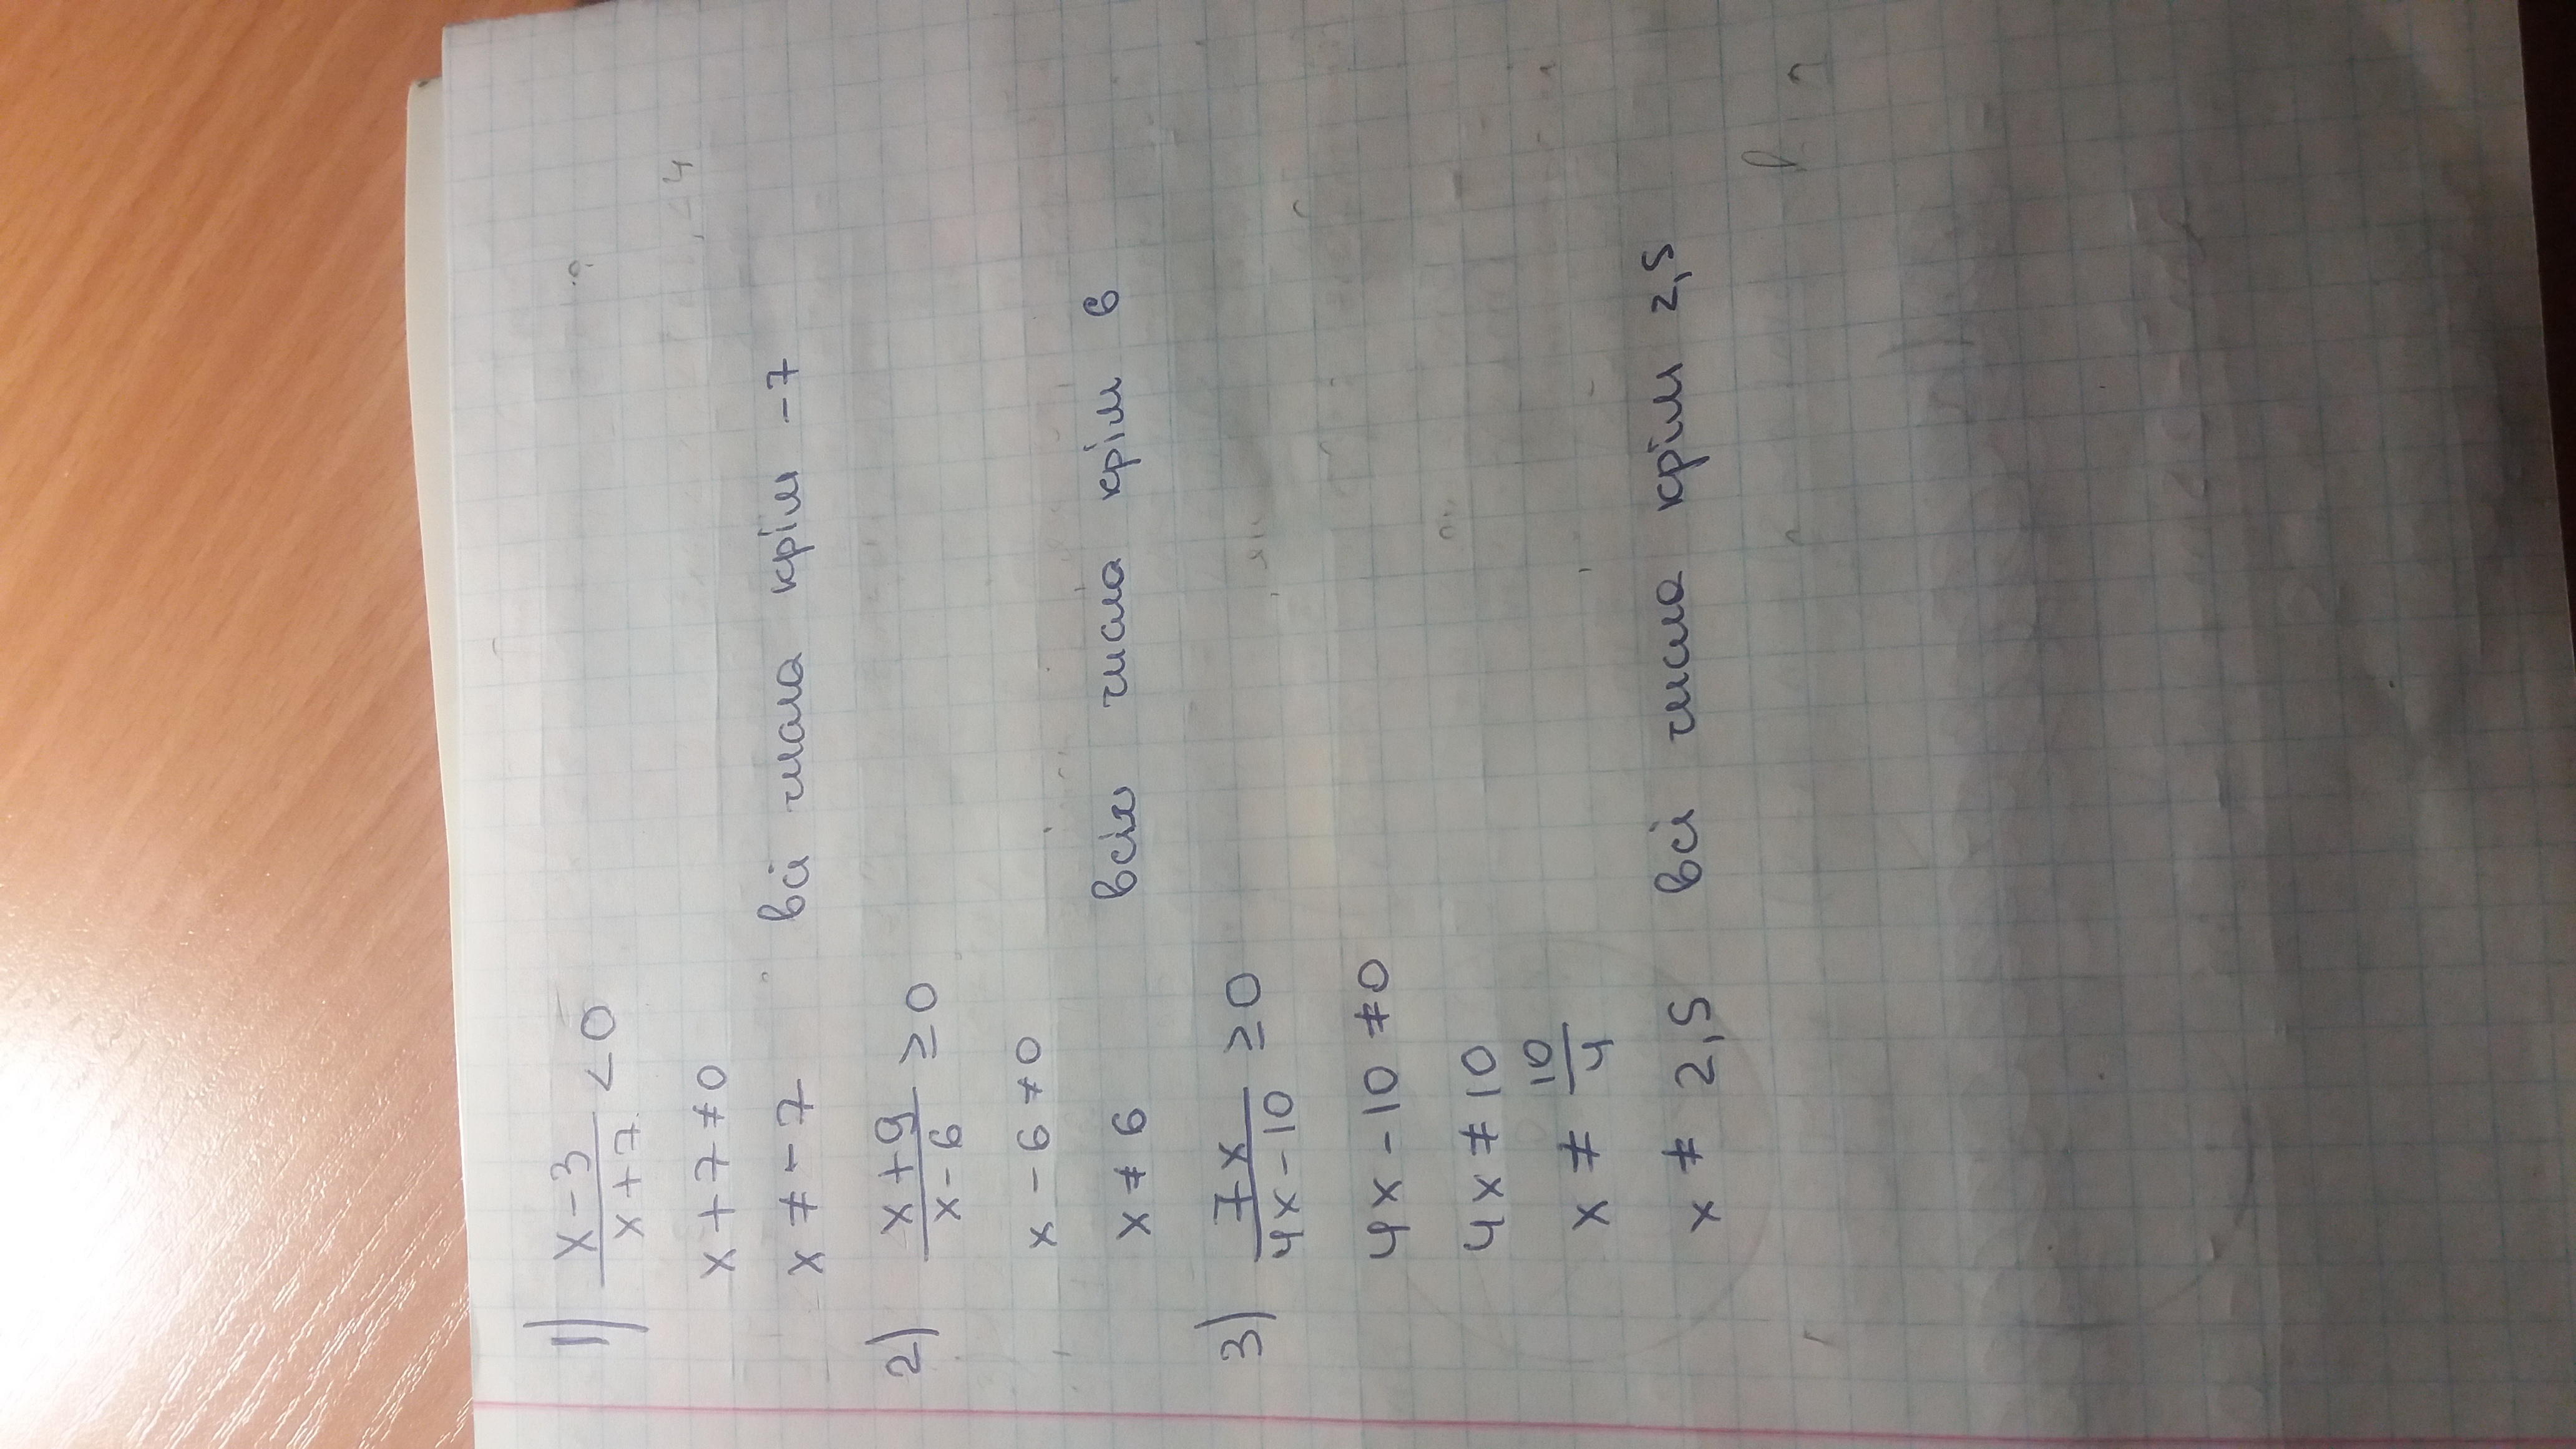 1) x-3/x+7 <0
x+7≠0
x≠-7 всі числа крім -7
2) x+9/x-6 ≥0
x-6≠0
x≠6 всім числа крім 6
3) 7+x/4x-10 ≥0
4x-10≠0
4x≠10
x≠10/4
x≠2,5 всі числа крім 2,5